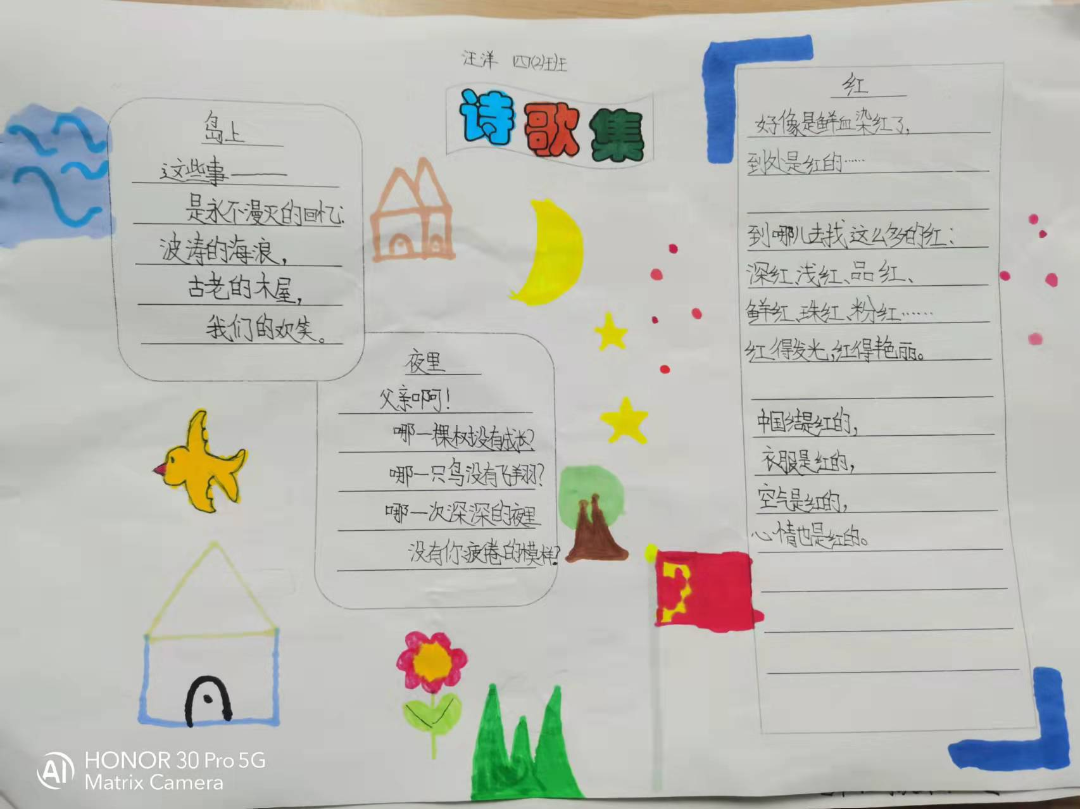 汪洋 四(2)班
诗歌集
岛上
这些事——
是永不漫灭的回忆:
波涛的海浪,
古老的木屋,
我们的欢笑。
夜里
父亲啊!
哪一棵树没有成长?
哪一只鸟没有飞翔?
哪一次深深的夜里
没有你疲倦的模样?
红
好像是鲜血染红了,
到处是红的……
到哪儿去找这么多的红:
深红、浅红、品红、
鲜红、珠红、粉红……
红得发光,红得艳丽。
中国结是红的,
衣服是红的,
空气是红的,
心情也是红的。
HONOR 30 Pro 5G
Matrix Camera
AI